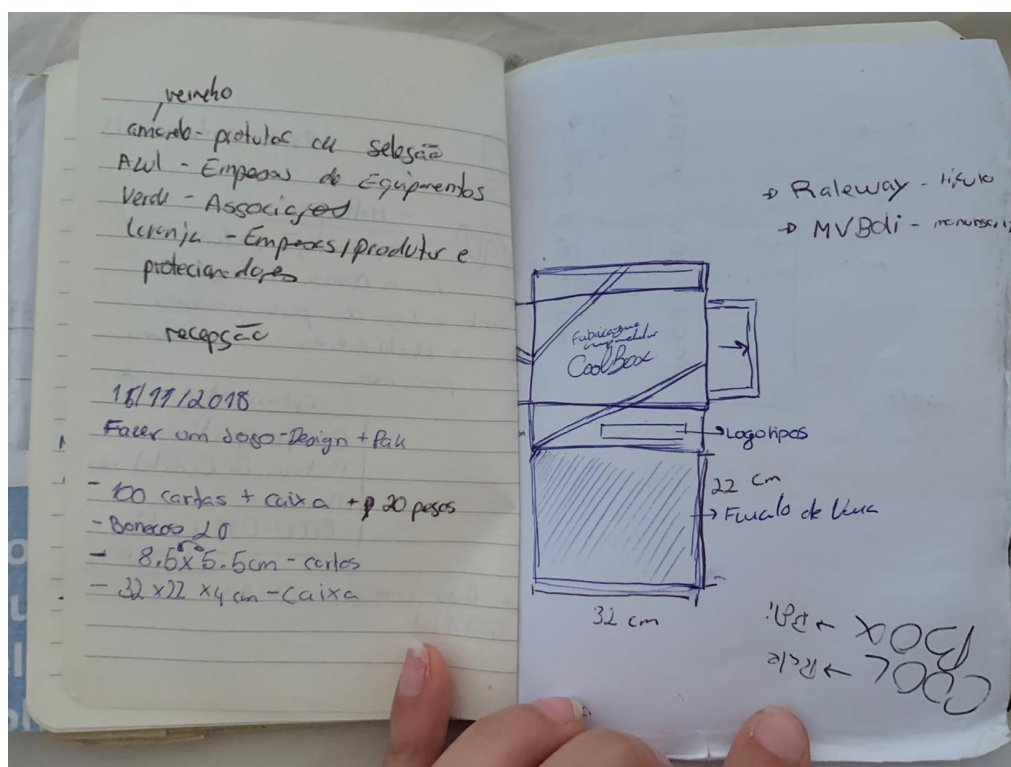 vermelho
amarelo - produtos de seleção
Azul - Empresas de Equipamentos
Verde - Associações
laranja - Empresas/produtor e
recepção
11/2018
Fazer um Jogo - Design + Pak
- 100 cartas + caixa + 20 peças
- Bonecos 20
- 8.5x5.5cm - cartas
- 32x22x4cm - caixa
→ Raleway - título
→ MVBoli -
CoolBox
→ Logotipos
22 cm
→ Fundo de
32 cm
COOL → Rale
BOX → Boli